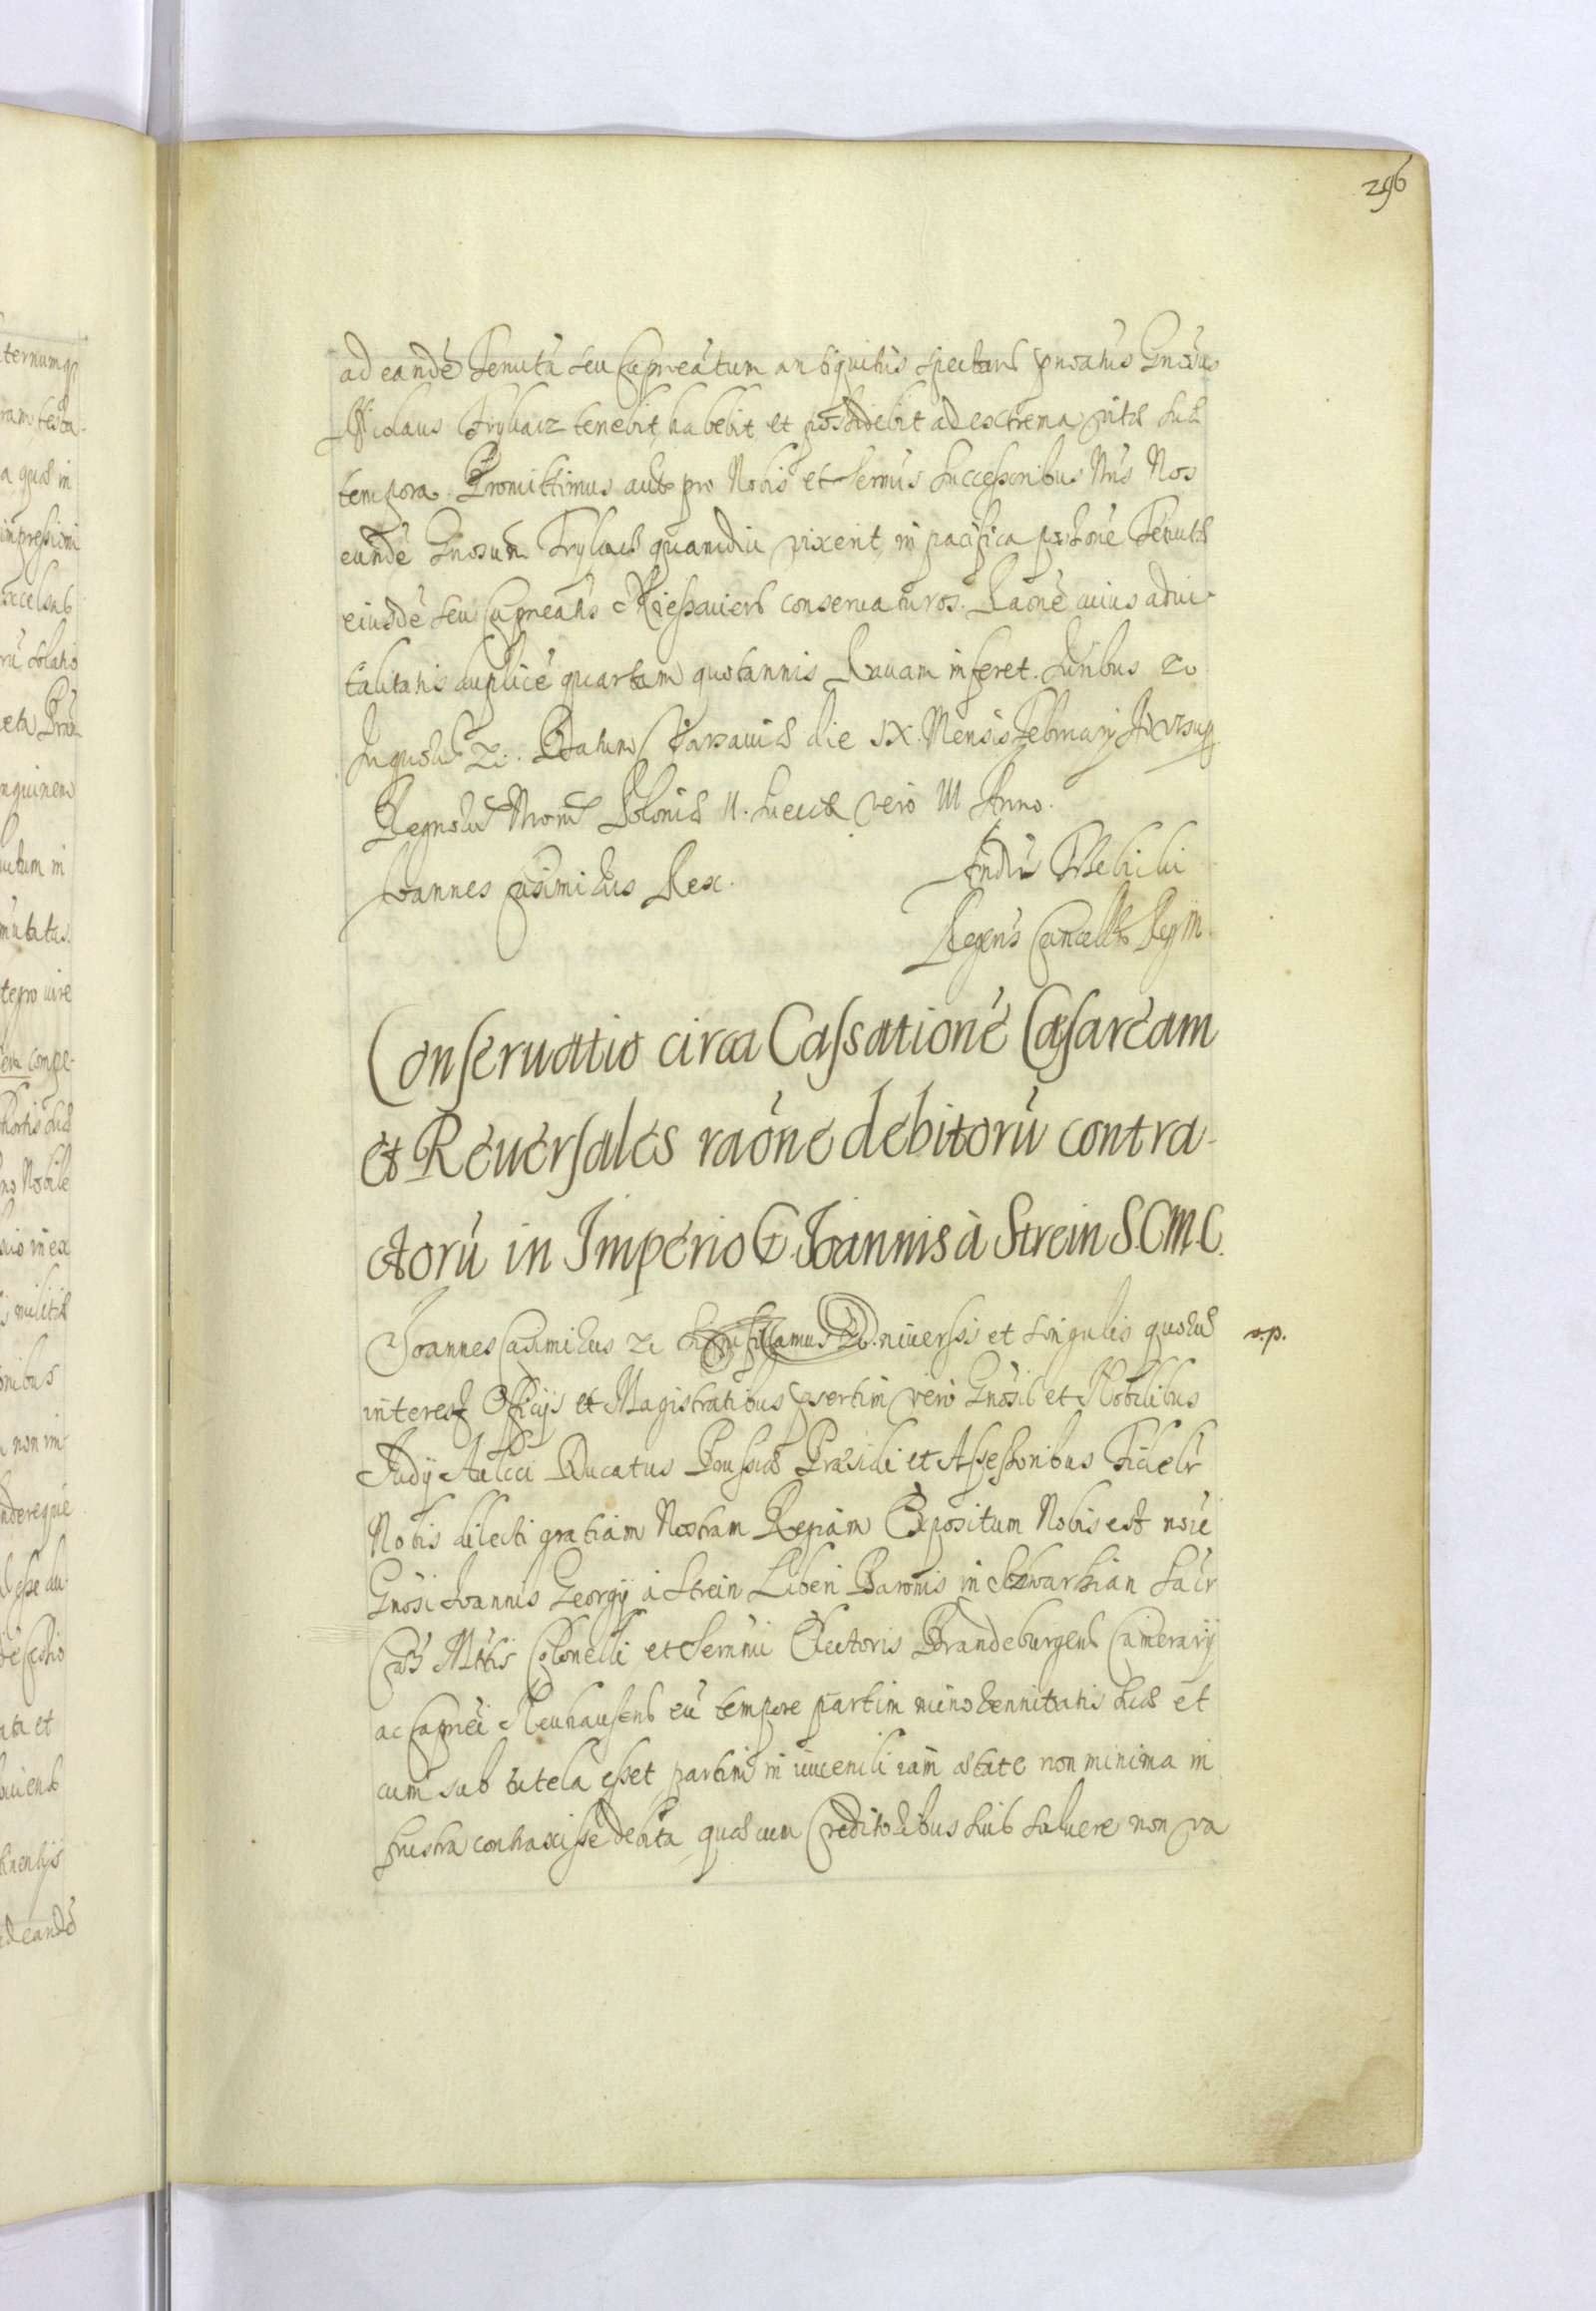 296
ad eandē Tenutā seu Capneātum antiquitus spectans pnōatus Gnōsus
Nicolaus Trybacz tenebit, habebit et possidebit ad extrema vitæ suæ
tempora. Promittimus aūt pro Nobis et Sernīs Successoribus Nrīs Nos
eundē Gnōsum quamdiu vixerit, in pacifica Tenutæ
eiusdē seu Capneatūs conseruaturos. Raōne cuius advi-
talitatis duplicē quartam quotannis Rauam inferet. Iuribus
Datum Varsauiæ die IX. Mensis Februarij
Regnorū Nrorū Poloniæ II. Sueciæ vero III Anno.
Ioannes Casimirus Rex.
Regens Cancellr̄
Conseruatio circa Cassationē Cæsaream
et Reuersales raōne debitorū contra-
ctorū in Imperio G. Ioannis à Strein S.C.M.C.
Ioannes Casimirus Uniuersis et singulis quorū
interest Officijs et Magistratibus psertim vero Gnōsis et Nobilibus
Iudij Aulici Ducatus Prussiæ Præsidi et Assessoribus Fidelr̄
Nobis dilecti gratiam Nostram Regiam Expositum Nobis est noiē
Gnōsi Ioannis Georgij à Strein Liberi Baronis in Schwartzian Sacr
Cæs Mttis Colonelli et Sernmi Electoris Brandeburgens Camerarij
ac Capnei Neuhausens eū tempore partim minorennitatis suæ et
cum sub tutela esset partim in iuuenili iam ætate non minima in
frustra contraxisse debita, quæ cum Creditoribus suis soluere non va